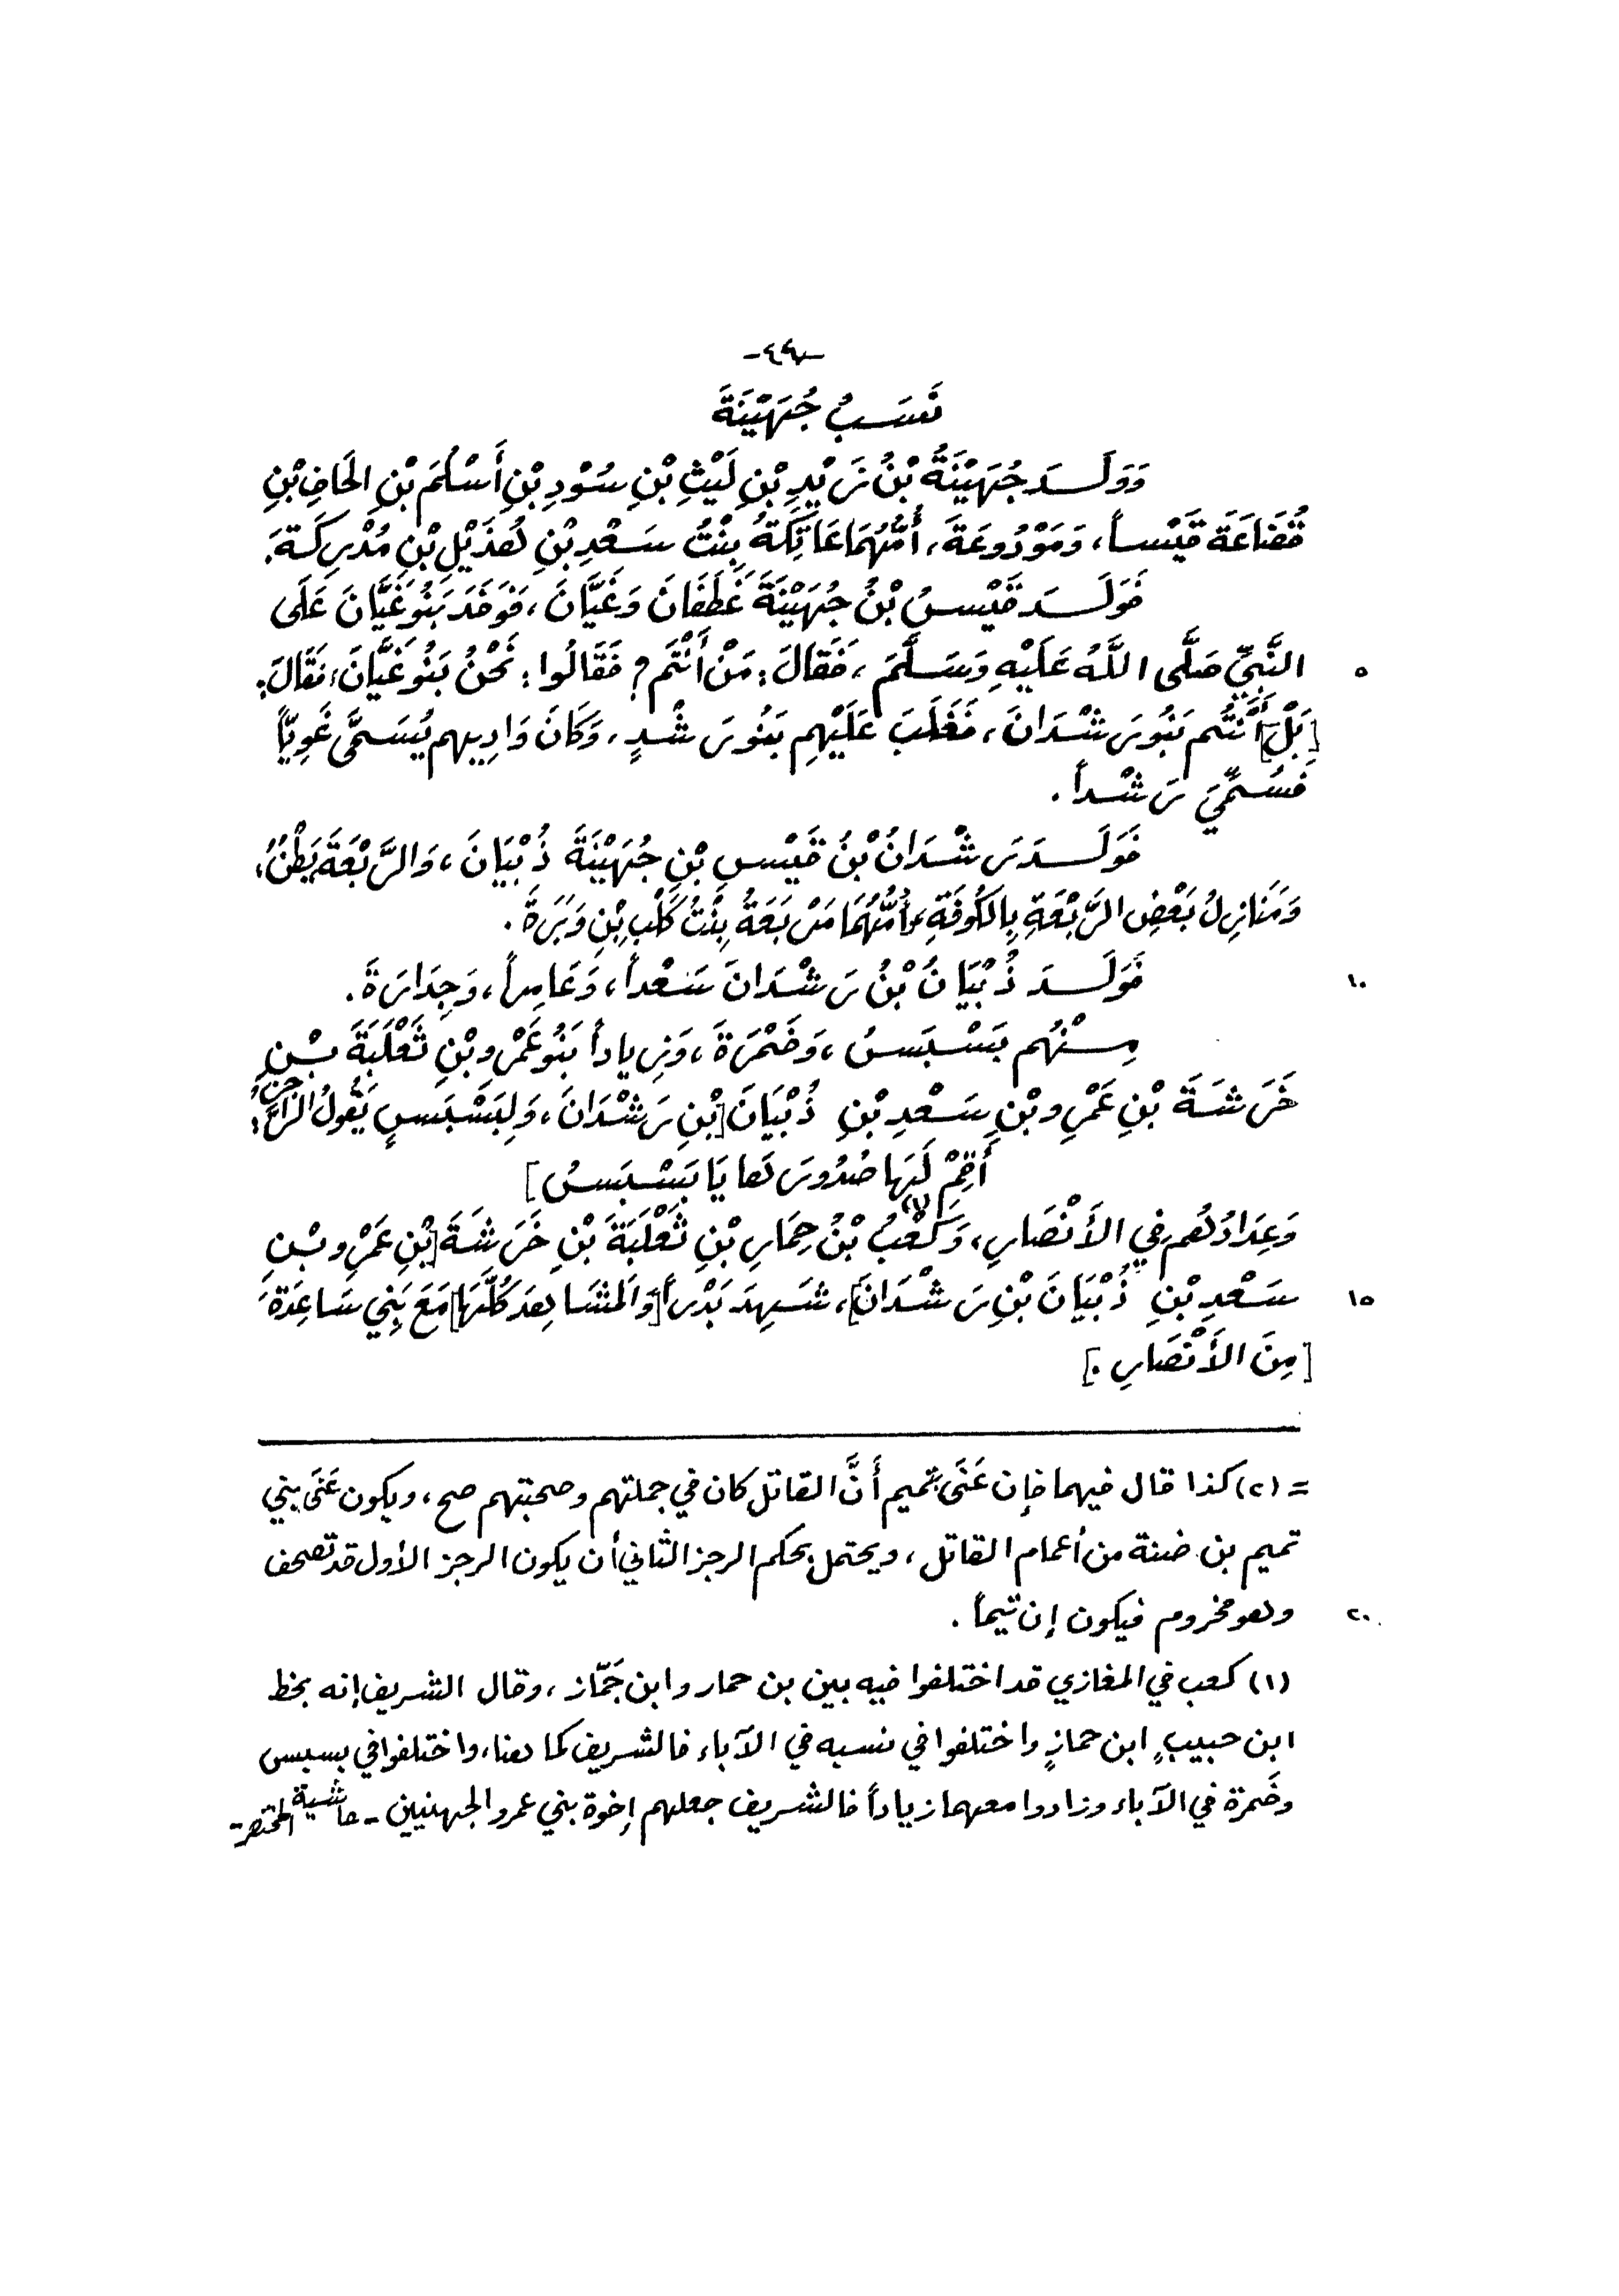 نَسَبُ جُهَيْنَةَ
وَوَلَـدَ جُهَيْنَةُ بْنُ زَيْدِ بْنِ لَيْثِ بْنِ سُوْدِ بْنِ أَسْلُمَ بْنِ الحَافِ بْنِ
قُضَاعَةَ قَيْساً، وَمَوْدُوعَةَ، أُمُّهُمَا عَاتِكَةُ بِنْتُ سَعْدِ بْنِ هُذَيْلِ بْنِ مُدْرِكَةَ.
فَوَلَـدَ قَيْسُ بْنُ جُهَيْنَةَ غَطَفَانَ وَغَيَّانَ، فَوَفَدَ بَنُو غَيَّانَ عَلَى
٥ النَّبِيِّ صَلَّى اللَّهُ عَلَيْهِ وَسَلَّمَ، فَقَالَ: مَنْ أَنْتُم؟ فَقَالُوا: نَحْنُ بَنُو غَيَّانَ، فَقَالَ:
[بَلْ] أَنْتُم بَنُو رَشْدَانَ، فَغَلَبَ عَلَيْهِم بَنُو رَشْدٍ، وَكَانَ وَادِيهم يُسَمَّى غَوِيّاً
فَسُمِّيَ رَشْداً.
فَوَلَـدَ رَشْدَانُ بْنُ قَيْسِ بْنِ جُهَيْنَةَ ذُبْيَانَ، وَالرَّبْعَةَ بَطْنٌ،
وَمَنَازِلُ بَعْضِ الرَّبْعَةِ بِالكُوفَةِ، وَأُمُّهُمَا مَرْبَعَةُ بِنْتُ كَلْبِ بْنِ وَبَرَةَ.
١٠ فَوَلَـدَ ذُبْيَانُ بْنُ رَشْدَانَ سَعْداً، وَعَامِراً، وَجِدَارَةَ.
مِـنْهُم بَسْبَسُ، وَضَمْرَةَ، وَزِيادأ بَنُو عَمْرِو بْنِ ثَعْلَبَةَ بْـنِ
خَرَشَةَ بْنِ عَمْرِو بْنِ سَعْدِ بْنِ ذُبْيَانَ [بْنِ رَشْدَانَ، وَلِبَسْبَسٍ يَقُولُ الرَّاجِزُ:
أَقِمْ لَهَا صُدُورَهَا يَا بَسْبَسُ]
وَعِدَادُهُم فِي الأَنْصَارِ، وَكَعْبُ (١) بْنُ حِمَارِ بْنِ ثَعْلَبَةَ بْنِ خَرَشَةَ [بْنِ عَمْرِو بْـنِ
١٥ سَعْدِ بْنِ ذُبْيَانَ بْنِ رَشْدَانَ]، شَهِدَ بَدْراً [وَالمَشَاهِدَ كُلَّهَا] مَعَ بَنِي سَاعِدَةَ
[مِنَ الأَنْصَارِ.]
= (٢) كذا قال فيهما فإن عَنَى بتميم أَنَّ القاتل كان في جملتهم وصحبتهم صح، ويكون عَنَى ببني
تميم بن ضنة من أعمام القاتل، ويحتمل بحكم الرجز الثاني أن يكون الرجز الأول قد تصحف
٢٠ وهو مخروم فيكون إن تيماً.
(١) كعب في المغازي قد اختلفوا فيه بين بن حمار وابن جَمّاز، وقال الشريف إنه بخط
ابن حبيبٍ ابن حمازٍ واختلفوا في نسبه في الآباء فالشريف كما هنا، واختلفوا في بسبس
وضَمرة في الآباء وزادوا معهما زياداً فالشريف جعلهم إخوة بني عمرو الجهنيين - حاشية المختصر -